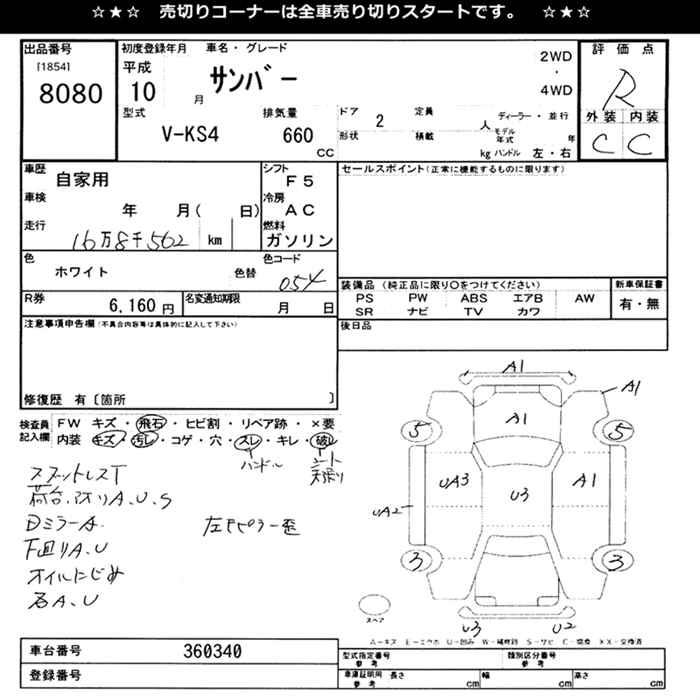 ☆★☆ 売切りコーナーは全車売り切りスタートです。 ☆★☆
出品番号
[1854]
8080
初度登録年月 車名・グレード
平成
10 月
サンバー
2WD
・
4WD
評価点
R
外装 内装
C C
型式
V-KS4
排気量
660
CC
ドア 2 定員 人
形状 積載 kg
ディーラー・並行
モデル年式 年
ハンドル 左・右
車歴
自家用
シフト
F5
車検
年 月( 日)
冷房
AC
走行
16万8千562 km
燃料
ガソリン
色
ホワイト
色替
色コード
054
R券
6,160 円
名変通知期限
月 日
セールスポイント(正常に機能するものに限ります)
装備品 (純正品に限り○をつけてください)
PS PW ABS エアB AW
SR ナビ TV カワ
新車保証書
有・無
後日品
注意事項申告欄(不具合内容等は具体的に記入して下さい)
修復歴 有〔箇所 〕
検査員記入欄
FW キズ・飛石・ヒビ割・リペア跡・×要
内装 キズ・汚レ・コゲ・穴・スレ・キレ・破レ
ハンドル
シート
荷台、アオリA、U、S
DミラーA
下回りA、U
オイルにじみ
右A、U
左Fピラー歪
A1
A1
A1
5
5
UA3
U3
A1
UA2
3
3
U3
U2
スペア
A-キズ E-エクボ U-凹み W-補修跡 S-サビ C-腐食 XX-交換済
車台番号
360340
登録番号
型式指定番号
参考
類別区分番号
参考
車庫証明用 長さ cm 幅 cm 高さ cm
参考